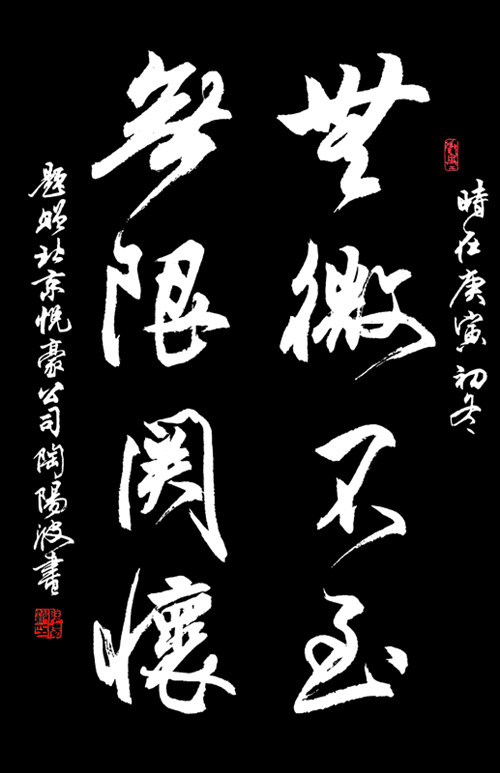 時在庚寅初冬
無微不至
無限関懷
題贈北京悅豪公司陶陽波書